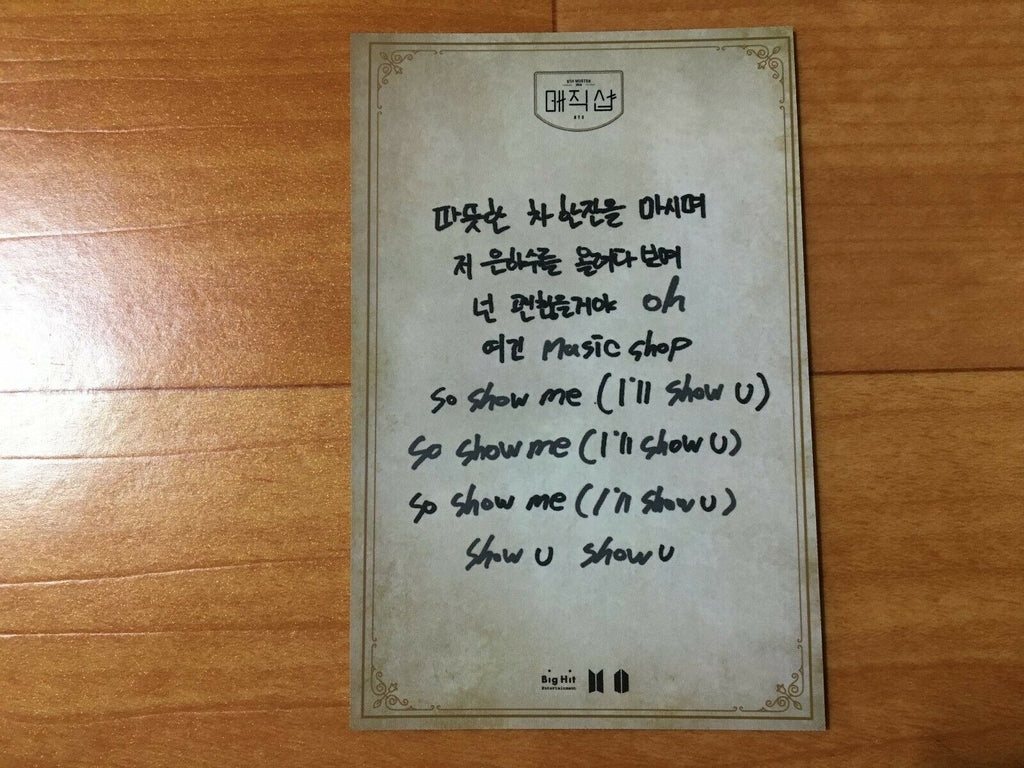 5TH MUSTER
매직샵
BTS
따뜻한 차 한잔을 마시며
저 은하수를 올려다 보며
넌 괜찮을거야 oh
여긴 Magic shop
so show me (I'll show U)
so show me (I'll show U)
so show me (I'll show U)
show U show U
Big Hit
Entertainment